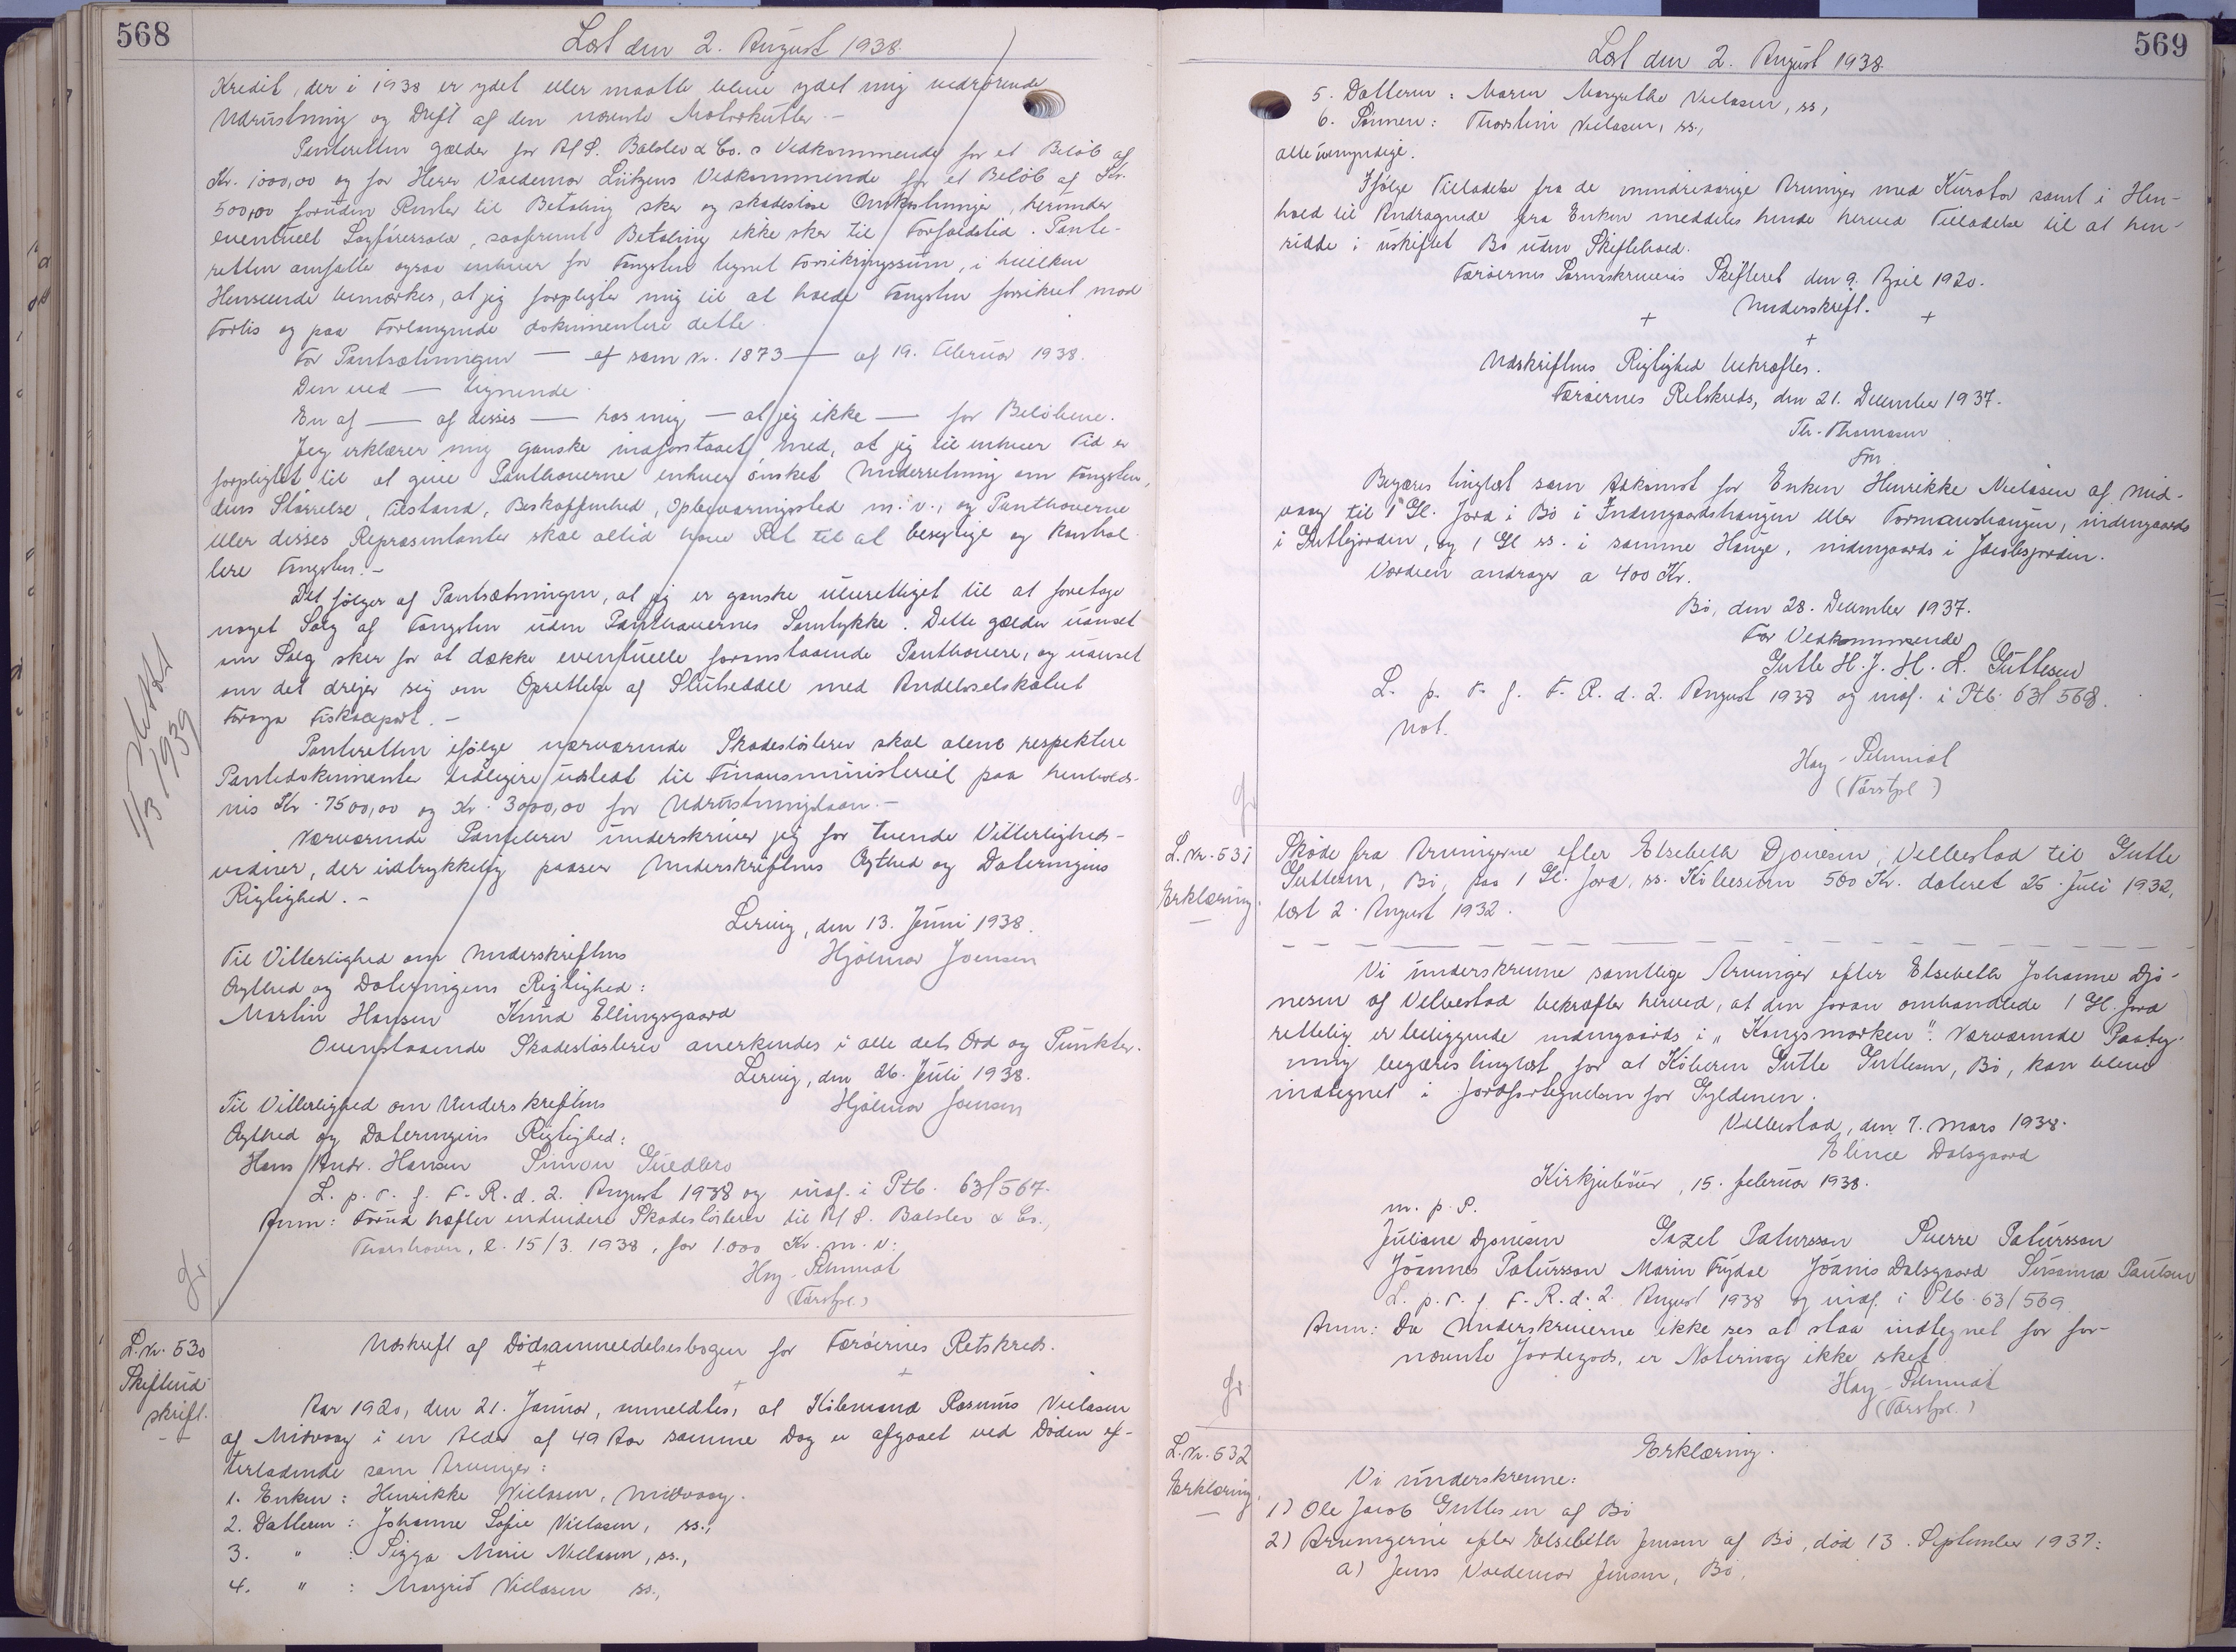 568
Læst den 2. August 1938.
Kredit, der i 1938 er ydet eller maatte blive ydet mig vedrørende
Udrustning og Drift af den nævnte Motorkutter. -
Panteretten gælder for A/S. Balslev & Co.s Vedkommende for et Beløb af
Kr. 1000,00 og for Herr Valdemar Lützens Vedkommende for et Beløb af Kr.
500,00 foruden Renter til Betaling sker og skadesløse Omkostninger, herunder
eventuelt Sagførersalær, saafremt Betaling ikke sker til Forfaldstid. Pante-
retten omfatter ogsaa enhver for Fangsten tegnet Forsikringssum, i hvilken
Henseende bemærkes, at jeg forpligter mig til at holde Fangsten forsikret mod
Forlis og paa Forlangende dokumentere dette.
For Pantsætningen — af sam Nr. 1873 — af 19. Februar 1938.
Den ved — lignende.
En af — af disses — hos mig — at jeg ikke — for Beløbene.
Jeg erklærer mig ganske indforstaaet med, at jeg til enhver Tid er
forpligtet til at give Panthaverne enhver ønsket Underretning om Fangsten,
dens Størrelse, Tilstand, Beskaffenhed, Opbevaringssted m.v., og Panthaverne
eller disses Repræsentanter skal altid have Ret til at besigtige og kontrol-
lere Fangsten. -
Det følger af Pantsætningen, at jeg er ganske uberettiget til at foretage
noget Salg af Fangsten uden Panthavernes Samtykke. Dette gælder uanset
om Salg sker for at dække eventuelle foranstaaende Panthavere, og uanset
om det drejer sig om Oprettelse af Slutseddel med Andelsselskabet
Føroya Fiskaexport. -
Panteretten ifølge nærværende Skadesløsbrev skal alene respektere
Pantedokumenter tidligere udstedt til Finansministeriet paa henholds-
vis Kr. 7500,00 og Kr. 3000,00 for Udrustningslaan. -
Nærværende Pantebrev underskriver jeg for tvende Vitterligheds-
vidner, der udtrykkelig paaser Underskriftens Ægthed og Dateringens
Rigtighed. -
Leirvig, den 13. Juni 1938.
Til Vitterlighed om Underskriftens Hjalmar Joensen
Ægthed og Dateringens Rigtighed:
Martin Hansen Knud Ellingsgaard
Ovenstaaende Skadesløsbrev anerkendes i alle dets Ord og Punkter.
Leirvig, den 26. Juli 1938.
Til Vitterlighed om Underskriftens Hjalmar Joensen
Ægthed og Dateringens Rigtighed:
Hans Andr. Hansen Simon
L. p. T. f. F. R. d. 2. August 1938 og indf. i Ptb. 63/567.
Anm: Forud hæfter endvidere Skadesløsbrev til A/S. Balslev & Co.,
Thorshavn, l. 15/3 1938, for 1.000 Kr. m. v.
Hay-Schmidt
(Færstpl.)
1/3 1939
L. Nr. 530
Skifteud-
skrift.
Udskrift af Dødsanmeldelsesbogen for Færøernes Retskreds.
+ + +
Aar 1920, den 21. Januar, anmeldtes, at Købmand Rasmus Nielsen
af Midvaag i en Alder af 49 Aar samme Dag er afgaaet ved Døden ef-
terladende som Arvinger:
1. Enken: Henrikke Nielsen, Midvaag.
2. Datteren: Johanne Sofie Nielsen, ss.,
3. " : Sigga Marie Nielsen, ss.,
4. " : Margrid Nielsen ss.,
569
Læst den 2. August 1938.
5. Datteren: Maren Margrethe Nielsen, ss,
6. Sønnen: Thorstein Nielsen, ss.,
alle umyndige.
Ifølge Tilladelse fra de mindreaarige Arvinger med Kurator samt i Hen-
hold til Andragende fra Enken meddeles hende herved Tilladelse til at hen-
sidde i uskiftet Bo uden Skifteværd.
Færøernes Sorenskriveris Skifteret den 9. April 1920.
Underskrift.
+ + +
Udskriftens Rigtighed bekræftes.
Færøernes Retskreds, den 21. December 1937.
Th. Thomasen
Fm.
Begæres tinglæst som Adkomst for Enken Henrikke Nielsen af Mid-
vaag til 1 Gl. Jord i Bø i Indengaardshaugen eller Formanshaugen, indengaards
i Guttejorden, og 1 Gl ss. i samme Hauge, indengaards i Jacobsjorden.
Værdien andrager a 400 Kr.
Bø, den 28. December 1937.
For Vedkommende
Gutte H. J. H. L. Guttesen
L. p. T. f. F. R. d. 2. August 1938 og indf. i Ptb. 63/568.
Not.
Hay-Schmidt
(Færstpl.)
L. Nr. 531
Erklæring.
Skøde fra Arvingerne efter Elsebeth Djonesen, Velbestad til Gutte
Guttesen, Bø, paa 1 Gl. Jord, ss. Købesum 500 Kr. dateret 25. Juli 1932,
læst 2. August 1932.
Vi underskrevne samtlige Arvinger efter Elsebeth Johanne Djo-
nesen af Velbestad bekræfter herved, at den foran omhandlede 1 Gl. Jord
rettelig er beliggende indengaards i „Kongsmarken". Nærværende Paateg-
ning begæres tinglæst for at Køberen Gutte Guttesen, Bø, kan blive
indtegnet i Jordfortegnelsen for Gyldenen.
Velbestad, den 7. Mars 1938.
Elince Dalsgaard
Kirkjubøur, 15. februar 1938.
m. p. P.
Juliane Djonesen Gazet Patursson Sverre Patursson
Jóannes Patursson Marin Frydal Jóanis Dalsgaard Susanna Paulsen
L. p. T. f. F. R. d. 2. August 1938 og indf. i Ptb. 63/569.
Anm: Da Underskriverne ikke ses at staa indtegnet for for-
nævnte Jordegods, er Notering ikke sket.
Hay-Schmidt
(Færstpl.)
L. Nr. 532
Erklæring.
Erklæring.
Vi underskrevne:
1) Ole Jacob Guttesen af Bø
2) Arvingerne efter Elsebeth Jensen af Bø, død 13. September 1937:
a) Jens Valdemar Jensen, Bø.